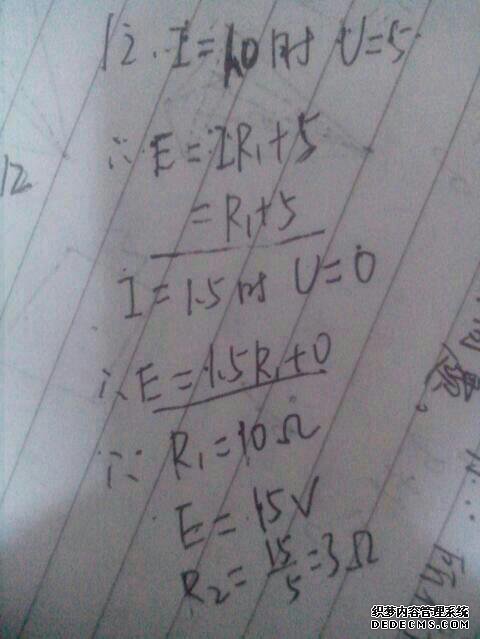 12. I=1.0时 U=5
∴E=IR₁+5
=R₁+5
I=1.5时 U=0
∴E=1.5R₁+0
∴R₁=10Ω
E=15V
R₂=15/5=3Ω
12
织梦内容管理系统
DEDECMS.COM